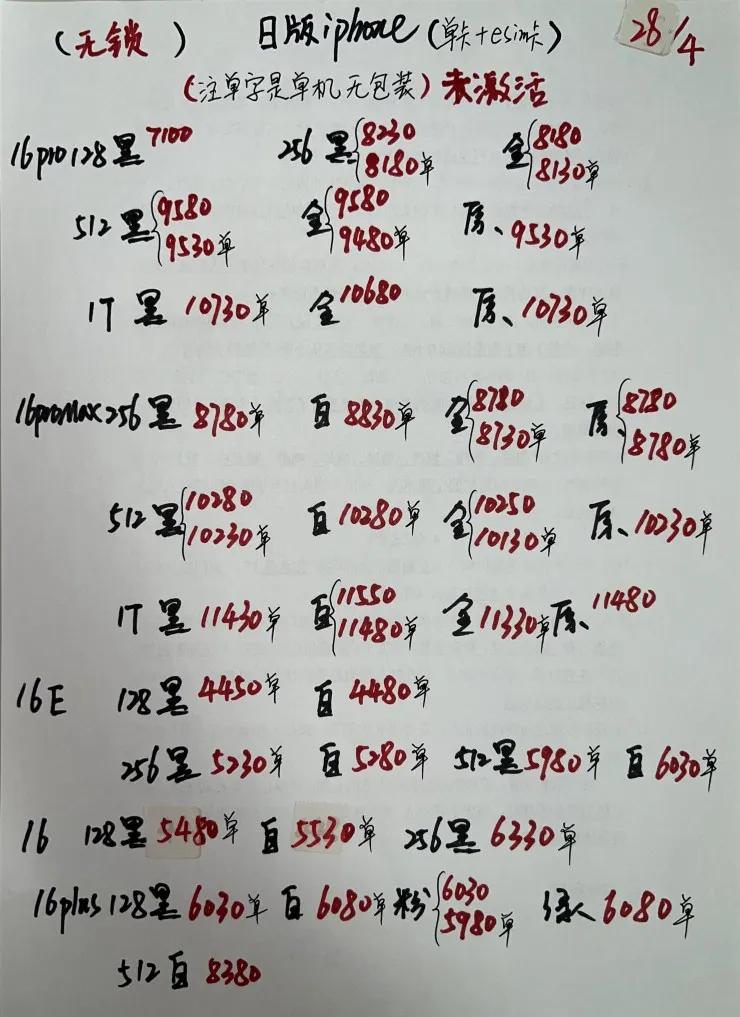 (无锁) 日版iphone(单卡+esim卡) 28/4
(注单字是单机无包装)未激活
16pro128黑7100 256黑{8230 8180单 金{8180 8130单
512黑{9580 9530单 金{9580 9480单 原、9530单
1T黑10730单 金10680 原、10730单
16promax256黑8780单 白8830单 金{8780 8730单 原、{8780 8780单
512黑{10280 10230单 白10280单 金{10250 10130单 原、10230单
1T黑11430单 白{11550 11480单 金11330单 原、11480
16E 128黑4450单 白4480单
256黑5230单 白5280单 512黑5980单 白6030单
16 128黑5480单 白5530单 256黑6330单
16plus128黑6030单 白6080单 粉{6030 5980单 绿6080单
512白8380